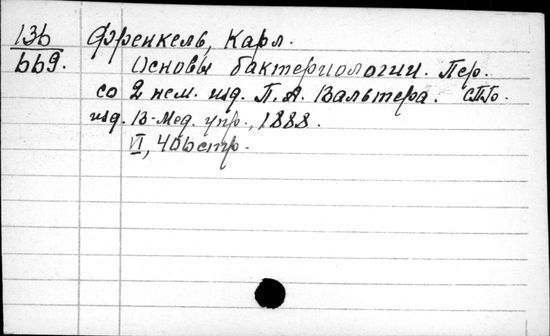 136
669.
Френкель, Карл.
Основы бактериологии. Пер.
со 2 нем. изд. П. А. Вальтера. СПб.
изд. В-Мед. упр., 1888.
VI, 406 стр.